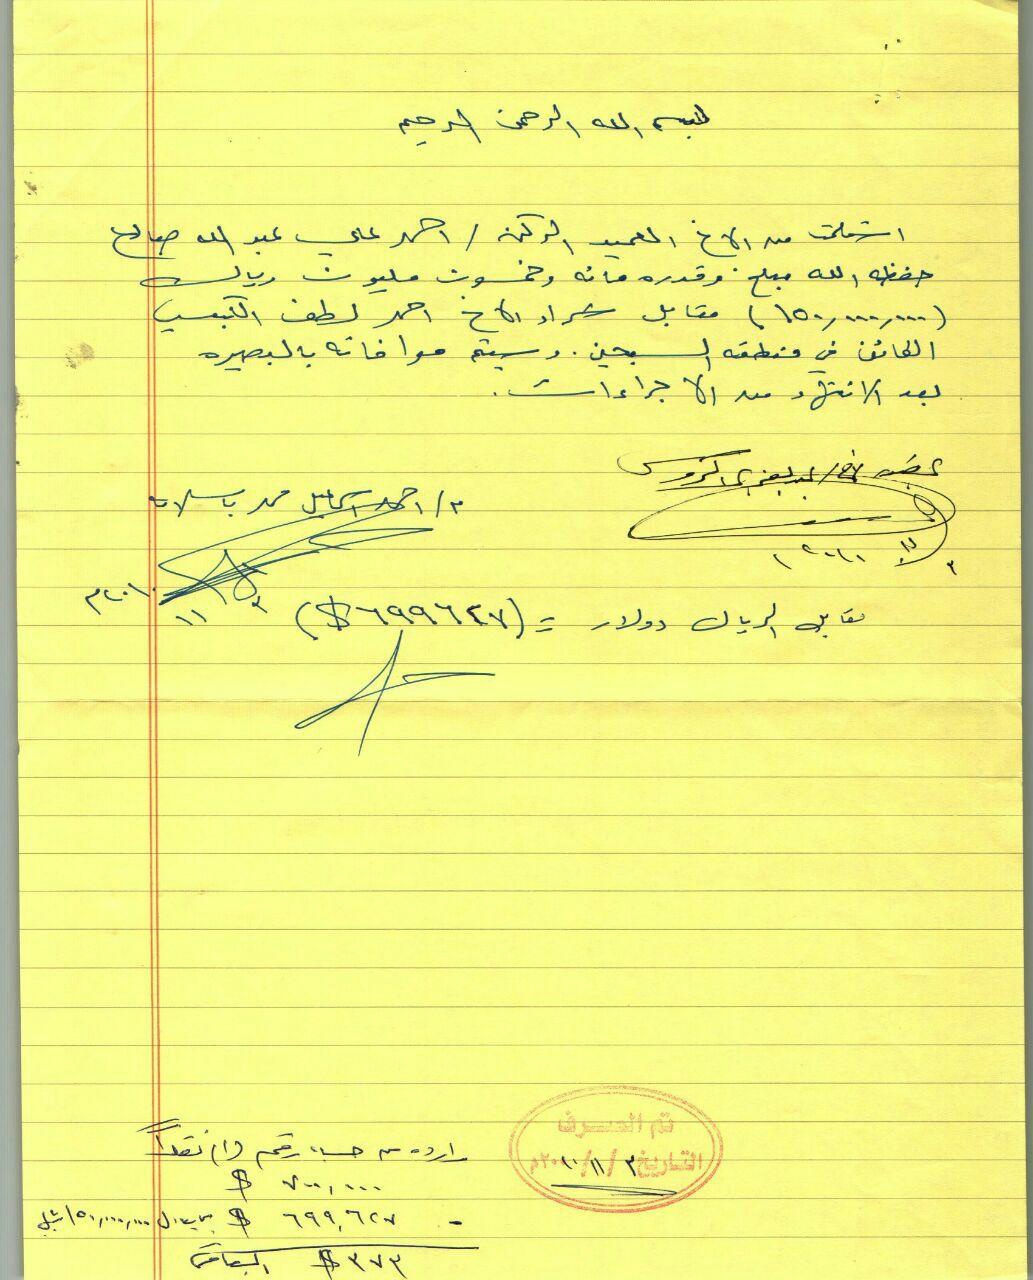 بسم الله الرحمن الرحيم
استلمت من الاخ العميد الركن / احمد علي عبد الله صالح
حفظه الله مبلغ وقدره مائه وخمسون مليون ريال
(١٥٠,٠٠٠,٠٠٠) مقابل شراء الاخ احمد لطف الكبسي
الكائن في منطقه السبعين. وسيتم موافاته بالبصيره
بعد الانتهاء من الاجراءات.
الاخ/
م/ احمد اسماعيل محمد باسلامه
٣ ١١ ٢٠١٠
٣ ١١ ٢٠١٠م
مقابل الريال دولار = (٦٩٩٦٢٧$)
تم الصرف
التاريخ ٣/١١/٢٠١٠م
من حساب رقم (١) نقداً
٧٠٠,٠٠٠ $
- ٦٩٩,٦٢٧ $ ١٥٠,٠٠٠,٠٠٠ ريال
٣٧٣ $ الباقي